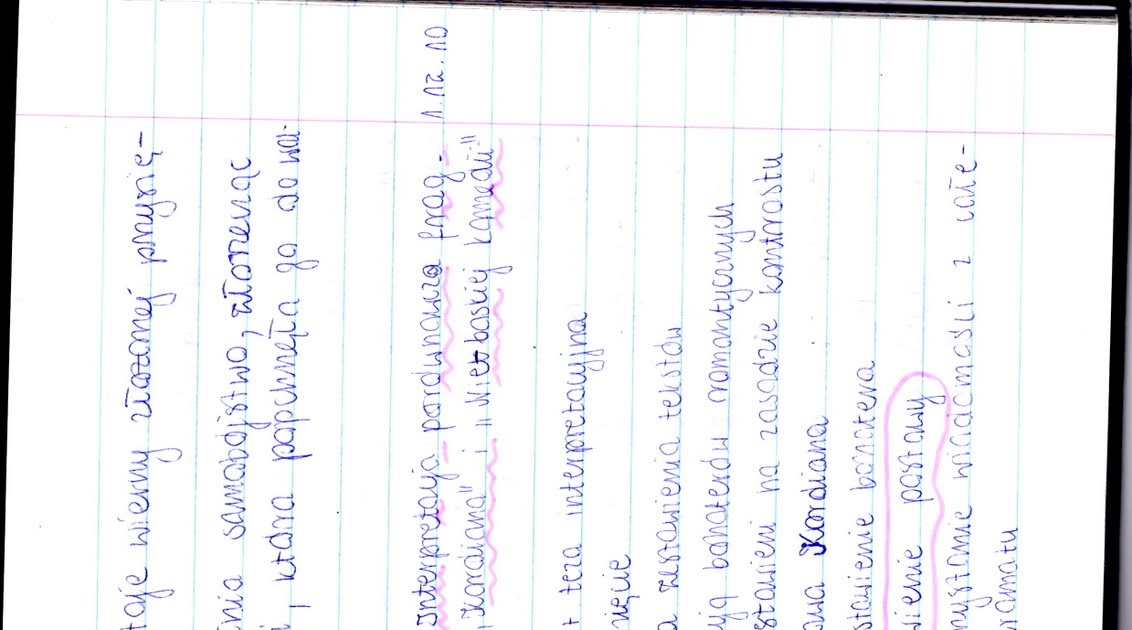 taje wierny złożonej przysię-
nia samobójstwo, złorzecząc
i, która popchnęła go do wal-
1.12.10
Interpretacja porównawcza frag.
"Kordiana" i "Nie-boskiej komedii"
+ teza interpretacyjna
ięcie
a zestawienia tekstów
ją bohaterów romantycznych
stawieni na zasadzie kontrastu
awa Kordiana
stawienie bohatera
ienie postawy
rzystanie wiadomości z całe-
ramatu